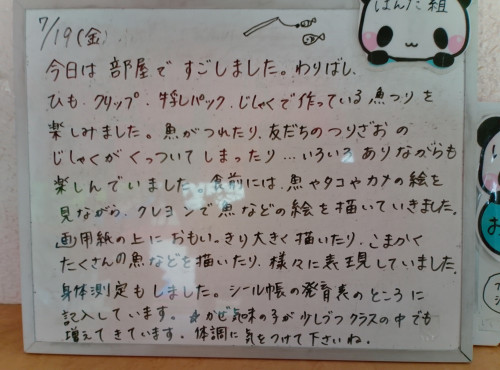 ぱんだ組
7/19(金)
今日は部屋ですごしました。わりばし、
ひも、クリップ、牛乳パック、じしゃくで作っている魚つりを
楽しみました。魚がつれたり、友だちのつりざおの
じしゃくがくっついてしまったり…いろいろありながらも
楽しんでいました。食前には、魚やタコやカメの絵を
見ながら、クレヨンで魚などの絵を描いていきました。
画用紙の上におもいっきり大きく描いたり、こまかく
たくさんの魚などを描いたり、様々に表現していました。
身体測定もしました。シール帳の発育表のところに
記入しています。☆かぜ気味の子が少しづつクラスの中でも
増えてきています。体調に気をつけて下さいね。